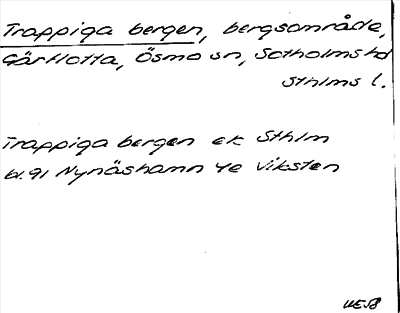 Trappiga bergen, bergsområde,
Gärflotta, Ösmo sn, Sotholms hd
Sthlms l.
Trappiga bergen ek Sthlm
bl. 91 Nynäshamn 4e Viksten